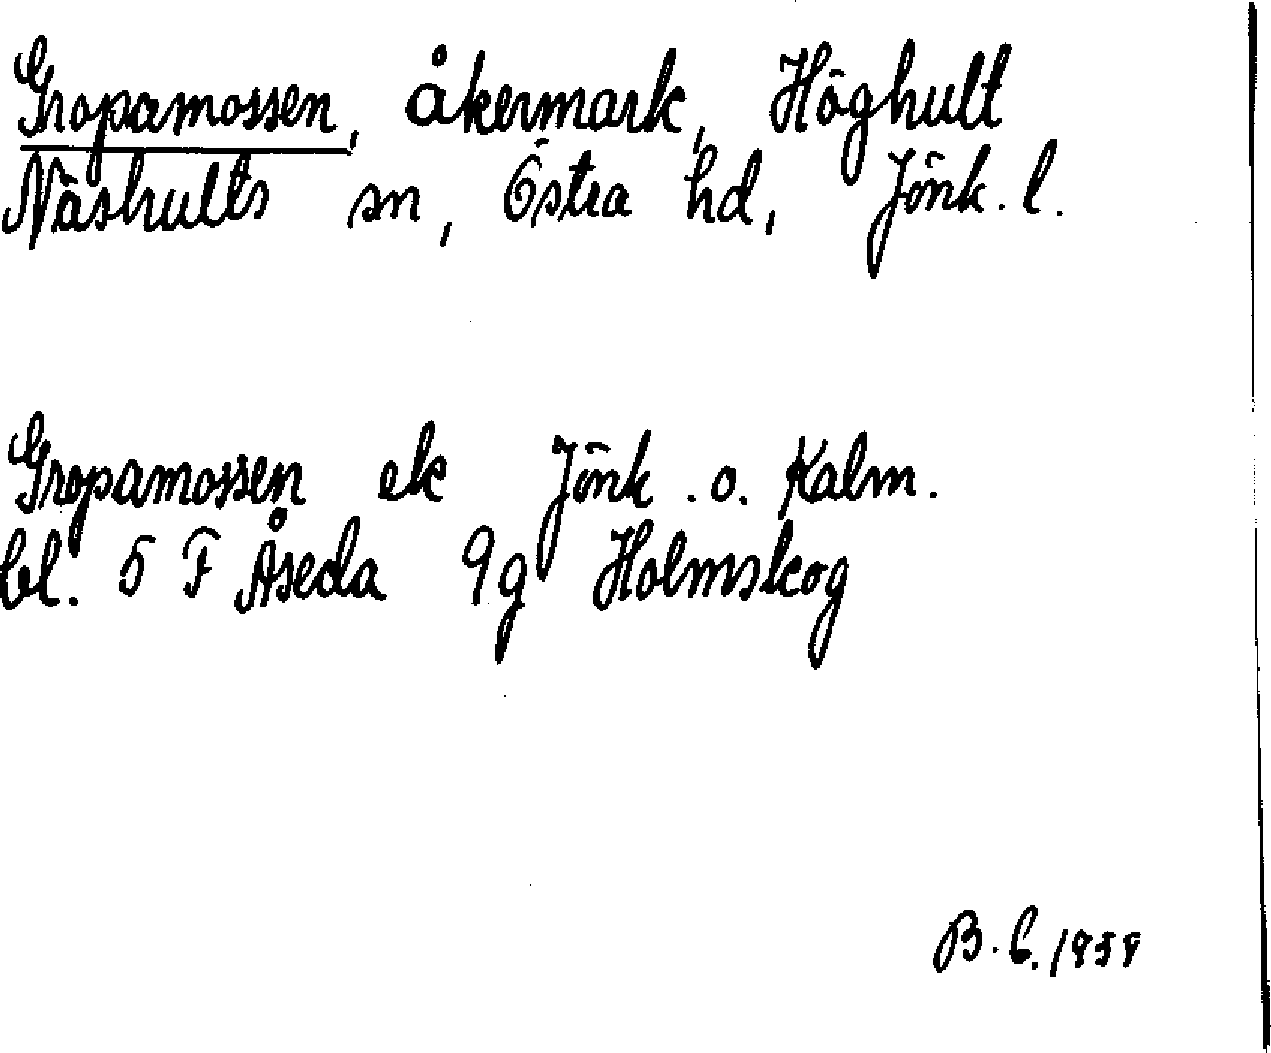 Gropamossen, åkermark, Höghult
Näshults sn, Östra hd, Jönk. l.
Gropamossen ek Jönk. o. Kalm.
bl. 5 F Åseda 9g Holmskog
B. C. 1959